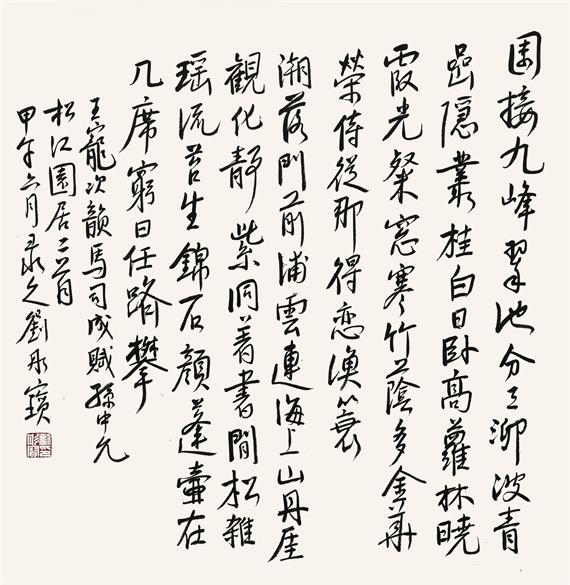 園接九峰翠池分三泖波青
嵒隱叢桂白日卧高蘿林曉
霞光粲窓寒竹蔭多金華
榮侍從那得恋漁簑
潮落門前浦雲連海上山丹厓
觀化静紫洞著書閒松雜
瑶流苔生錦石顏蓬壷在
几席窮日任路攀
王寵次韻馬司成賦孫中允
松江園居二首
甲午六月录之劉